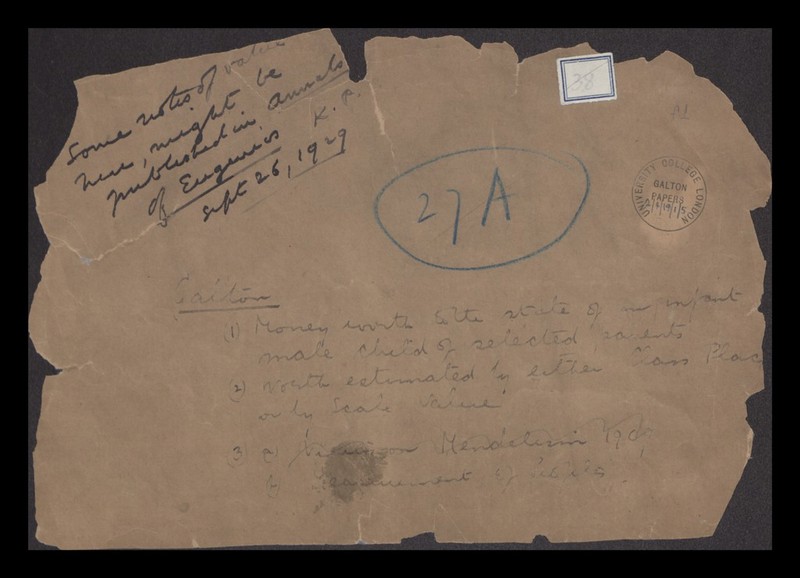 Some notes of value
here, might be
published in Annals
of Eugenics K. P.
Sept 26, 1929
38
27A
UNIVERSITY COLLEGE LONDON
GALTON
PAPERS
Galton
(1) Money worth to the state of an infant
male child of selected parents
(2) worth estimated by either Class Place
or by Scale Value
(3) a) Mendelism
b) Measurement of